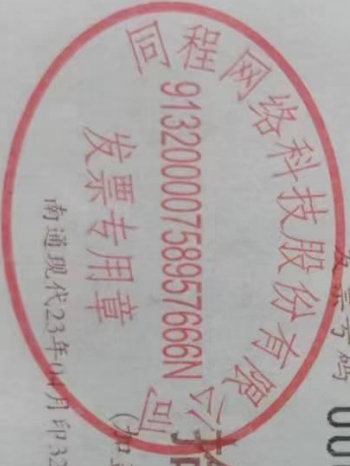 同程网络科技股份有限公司
91320000758957666N
发票专用章
南通现代23年01月印32
发票号码
00
(加